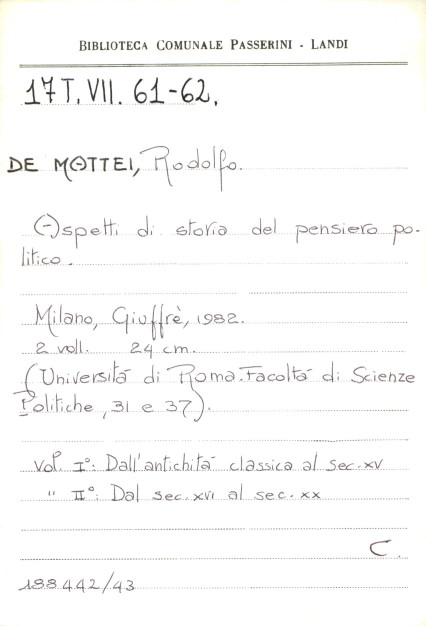 BIBLIOTECA COMUNALE PASSERINI - LANDI
17 T. VII. 61-62.
DE MATTEI, Rodolfo.
Aspetti di storia del pensiero po-
litico.
Milano, Giuffrè, 1982.
2 voll. 24 cm.
(Università di Roma. Facoltà di Scienze
Politiche, 31 e 37).
Vol. I°: Dall'antichità classica al sec. XV
" II°: Dal sec. XVI al sec. XX
C.
188442/43